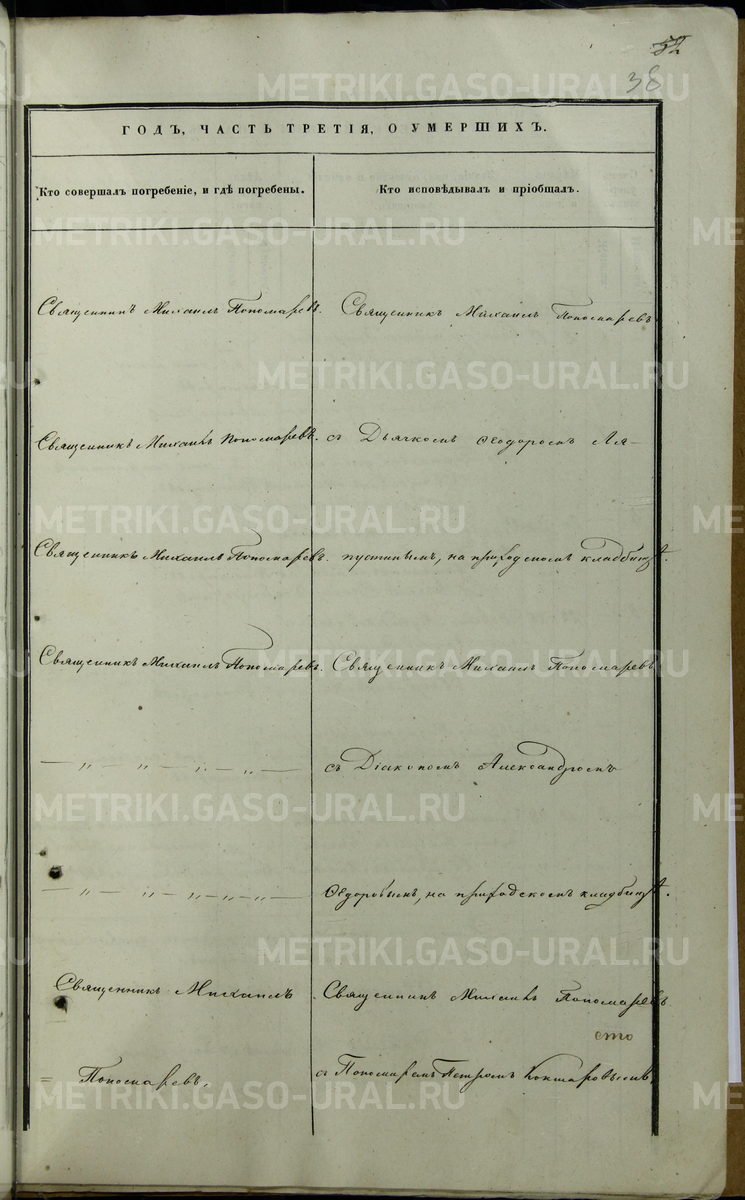 52
38
ГОДЪ, ЧАСТЬ ТРЕТІЯ, О УМЕРШИХЪ.
Кто совершалъ погребеніе, и гдѣ погребены.
Кто исповѣдывалъ и пріобщалъ.
Священникъ Михаилъ Пономаревъ.
Священникъ Михаилъ Пономаревъ
Священникъ Михаилъ Пономаревъ.
съ Дьячкомъ Ѳеодоромъ Ля-
Священникъ Михаилъ Пономаревъ.
пустинымъ, на приходскомъ кладбищѣ.
Священникъ Михаилъ Пономаревъ.
Священникъ Михаилъ Пономаревъ
— „ — „ — „ — „ —
съ Діакономъ Александромъ
— „ — „ — „ — „ — „ —
Ѳедоровымъ, на приходскомъ кладбищѣ.
Священникъ Михаилъ
Священникъ Михаилъ Пономаревъ
= Пономаревъ.
съ Пономаремъ Петромъ Кокшаровымъ
METRIKI.GASO-URAL.RU
METRIKI.GASO-URAL.RU
METRIKI.GASO-URAL.RU
METRIKI.GASO-URAL.RU
METRIKI.GASO-URAL.RU
METRIKI.GASO-URAL.RU
METRIKI.GASO-URAL.RU
METRIKI.GASO-URAL.RU